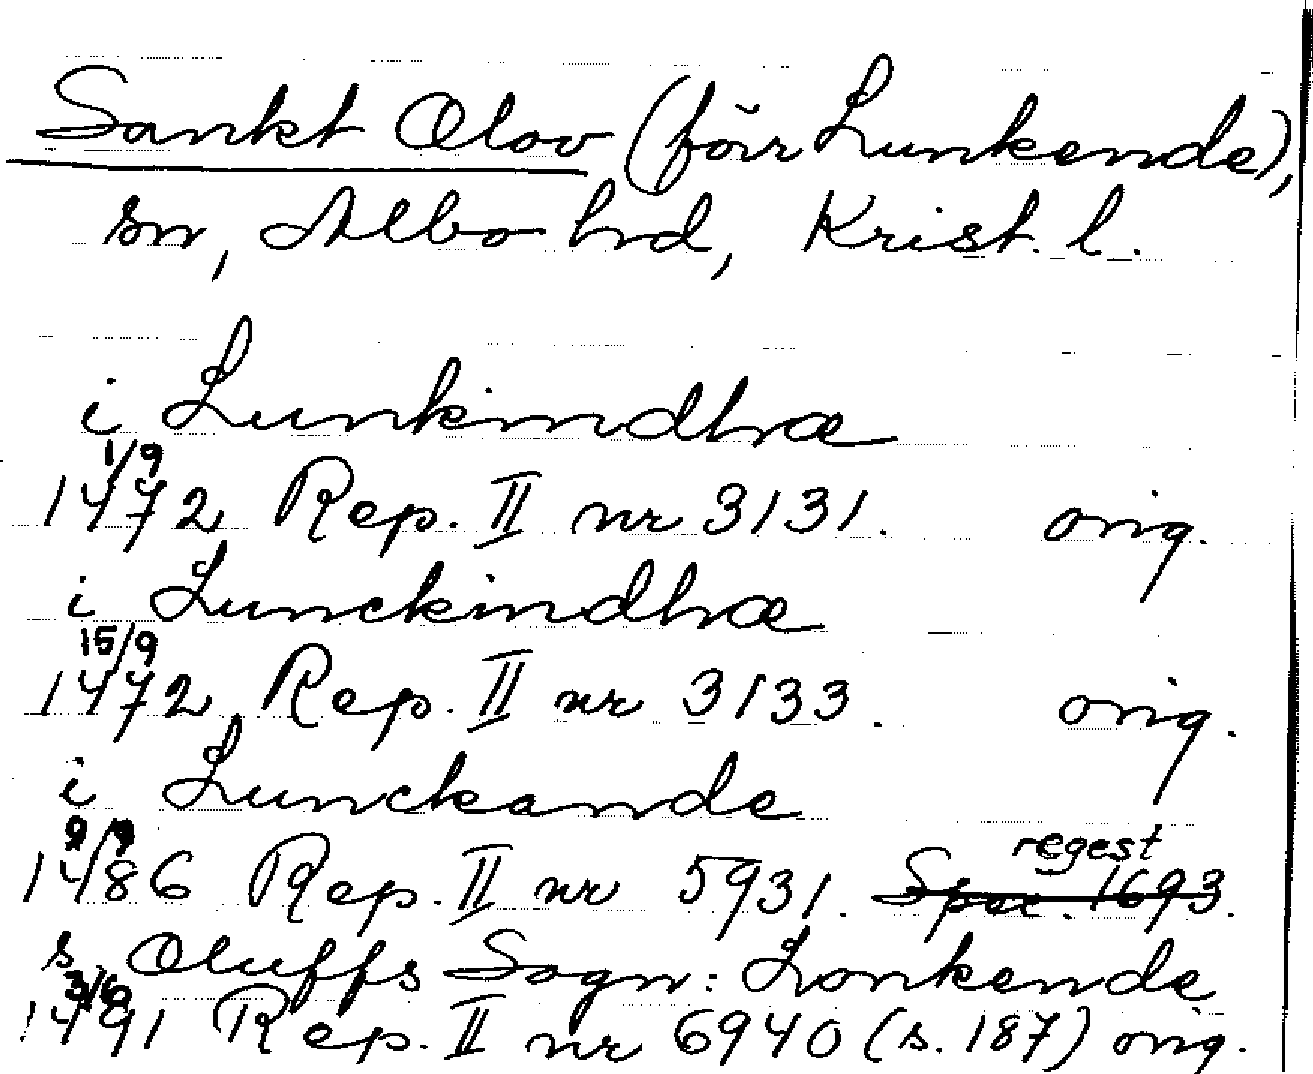 Sankt Olov (förr Lunkende),
sn, Albo hrd, Krist. l.
i Lunkindhæ
1/9
1472 Rep. II nr 3131. orig.
i Lunckindhæ
15/9
1472 Rep. II nr 3133. orig.
i Lunckande
9/9 regest
1486 Rep. II nr 5931. Spec. 1693.
s. Oluffs Sogn: Lonkende
3/6
1491 Rep. II nr 6940 (s. 187) orig.